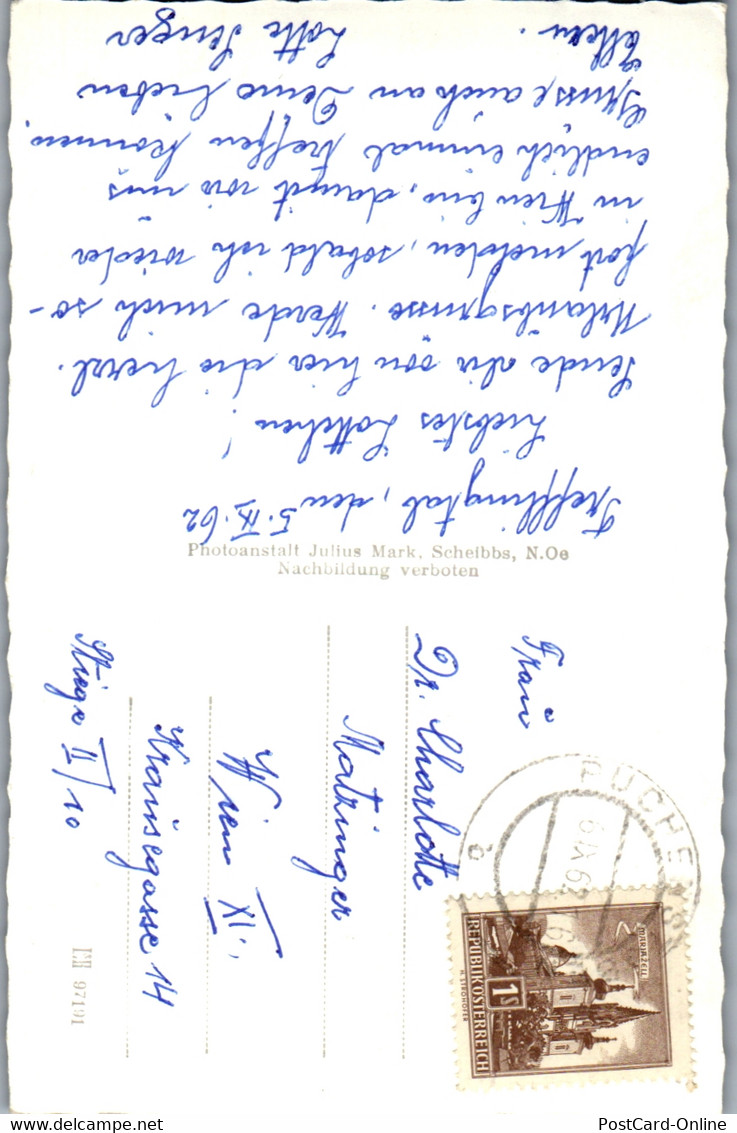 Trefflingtal, den 5.IX.62
Liebstes Lottchen!
Sende dir von hier die herzl.
Urlaubsgrüsse. Werde mich so-
fort melden, sobald ich wieder
in Wien bin, damit wir uns
endlich einmal treffen können.
Grüsse auch an Deine lieben
Eltern.
Lotte
Photoanstalt Julius Mark, Scheibbs, N.Oe
Nachbildung verboten
Frau
Dr. Charlotte
Matzinger
Wien XI.,
Krausegasse 14
Stiege II/10
97191
PUCHEN
6.IX.62
MARIAZELL
REPUBLIK ÖSTERREICH
1 S
PostCard-Online